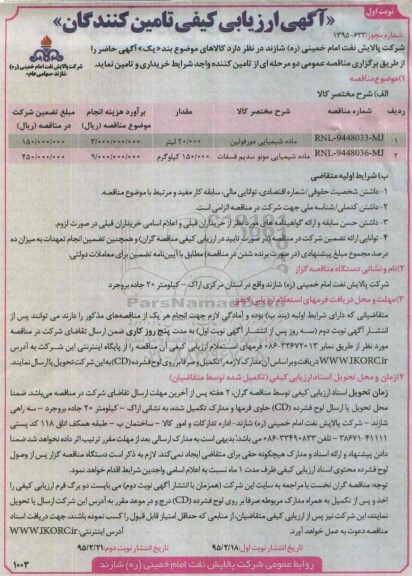 نوبت اول
«آگهی ارزیابی کیفی تامین کنندگان»
شماره مجوز: ۱۳۹۵-۶۲۲
شرکت پالایش نفت امام خمینی (ره) شازند در نظر دارد کالاهای موضوع بند «یک» آگهی حاضر را
از طریق برگزاری مناقصه عمومی دو مرحله ای از تامین کننده واجد شرایط خریداری و تامین نماید.
شرکت پالایش نفت امام خمینی (ره)
شازند (سهامی عام)
۱)موضوع مناقصه
الف) شرح مختصر کالا
ردیف شماره مناقصه شرح مختصر کالا مقدار برآورد هزینه انجام موضوع مناقصه (ریال) مبلغ تضمین شرکت در مناقصه (ریال)
۱ RNL-9448033-MJ ماده شیمیایی مورفولین ۲۰/۰۰۰ لیتر ۳/۰۰۰/۰۰۰/۰۰۰ ۱۵۰/۰۰۰/۰۰۰
۲ RNL-9448036-MJ ماده شیمیایی مونو سدیم فسفات ۱۵۰/۰۰۰ کیلوگرم ۹/۰۰۰/۰۰۰/۰۰۰ ۴۵۰/۰۰۰/۰۰۰
ب) شرایط اولیه متقاضی
۱- داشتن شخصیت حقوقی/شماره اقتصادی، توانایی مالی، سابقه کار مفید و مرتبط با موضوع مناقصه
۲- داشتن کدملی/شناسه ملی جهت شرکت در مناقصه الزامی است.
۳- داشتن حسن سابقه و ارائه گواهینامه های مورد نظر از خریداران قبلی و اعلام اسامی خریداران قبلی در صورت لزوم.
۴- توانایی ارائه تضمین شرکت در مناقصه (در صورت تایید در ارزیابی کیفی مناقصه گران) و همچنین تضمین انجام تعهدات به میزان ده
درصد مجموع مبلغ پیشنهادی (در صورت برنده شدن در مناقصه) مطابق با آیین نامه تضمین برای معاملات دولتی.
۲)نام و نشانی دستگاه مناقصه گزار
شرکت پالایش نفت امام خمینی (ره) شازند واقع در استان مرکزی اراک – کیلومتر ۲۰ جاده بروجرد
۳)مهلت و محل دریافت فرمهای استعلام ارزیابی کیفی
متقاضیانی که دارای شرایط اولیه (بند ب) بوده و آمادگی لازم جهت انجام هر یک از مناقصه‌های مذکور را دارند می توانند پس از
انتشار آگهی نوبت دوم (سه روز پس از انتشار آگهی نوبت اول) به مدت پنج روز کاری ضمن ارسال تقاضای شرکت در مناقصه
مورد نظر از طریق نمابر ۳۳۶۷۲۰۱۳-۰۸۶ فرمهای استعلام ارزیابی کیفی آن مناقصه را از پایگاه اینترنتی این شرکت به آدرس
WWW.IKORC.ir دریافت و براساس آن مدارک لازمه را تکمیل و صرفا بر روی لوح فشرده (CD) به این شرکت تحویل یا ارسال نمایند.
۴)زمان و محل تحویل اسناد ارزیابی کیفی (تکمیل شده توسط متقاضیان)
زمان تحویل اسناد ارزیابی کیفی توسط مناقصه گران، ۲ هفته پس از آخرین مهلت ارسال تقاضای شرکت در مناقصه می‌باشد ضمنا
محل تحویل یا ارسال لوح فشرده (CD) حاوی فرمها و مدارک تکمیل شده، به نشانی اراک - کیلومتر ۲۰ جاده بروجرد – سه راهی
شازند – شرکت پالایش نفت امام خمینی (ره) شازند- اداره تدارکات و امور کالا – ساختمان پ – طبقه همکف اتاق ۱۱۸ کد پستی
۴۱۱۱۱-۳۸۶۷۱ – تلفن ۳۳۴۹۰۸۳۳-۰۸۶ می باشد؛ بدیهی است به مدارک ارسالی بعد از مهلت مقرر ترتیب اثر داده نخواهد شد ضمنا
دادن پیشنهاد و ارائه اسناد و مدارک هیچگونه حقی برای متقاضی ایجاد نمی‌کند. لازم به ذکر است دستگاه مناقصه گزار پس از وصول
لوح فشرده محتوی اسناد ارزیابی کیفی ظرف مدت ۱ ماه نسبت به اعلام اسامی واجدین شرایط اقدام خواهد نمود.
توجه: مناقصه گران نخست با مراجعه به سایت این شرکت (همزمان با انتشار آگهی نوبت دوم) می بایست دو برگ فرم ارزیابی کیفی را
اخذ و پس از تکمیل به همراه مدارک مربوطه صرفا بر روی لوح فشرده (CD) درج و در موعد مقرر به آدرس این شرکت ارسال یا تحویل
نمایند، این شرکت نیز پس از ارزیابی کیفی متقاضیان، از منابعی که حداقل امتیاز قابل قبول را کسب نموده باشند، جهت دریافت اسناد
مناقصه دعوت به عمل خواهد آورد. آدرس اینترنتی: WWW.IKORC.ir
تاریخ انتشار نوبت اول: ۹۵/۲/۱۸ تاریخ انتشار نوبت دوم: ۹۵/۲/۲۱
روابط عمومی شرکت پالایش نفت امام خمینی (ره) شازند
۱۰۰۳